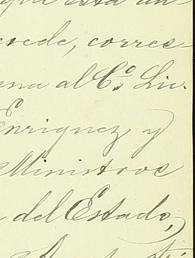 que está an-
cede, corres-
ena al C.º Lic.
Enriquez, y
Ministros
del Estado,